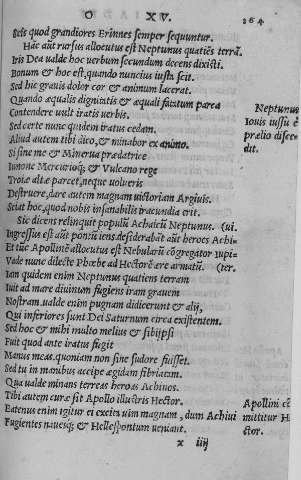 O XV.
264
Scis quod grandiores Erinnes semper sequuntur.
Hac aūt rursus allocutus est Neptunus quatiēs terrā.
Iris Dea ualde hoc uerbum secundum decens dixisti.
Bonum & hoc est, quando nuncius iusta scit.
Sed hic grauis dolor cor & animum lacerat.
Quando æqualis dignitatis & æquali fatatum parca
Contendere uult iratis uerbis.
Sed certe nunc quidem iratus cedam.
Aliud autem tibi dico, & minabor ex animo.
Si sine me & Minerua prædatrice
Iunone Mercurioq; & Vulcano rege
Troiæ altæ parcet, neque uoluerit
Destruere, dare autem magnam uictoriam Argiuis.
Sciat hoc, quod nobis insanabilis iracundia erit.
Sic dicens relinquit populū Achaicū Neptunus. (ui.
Ingressus est aūt pontū iens, desiderabāt aūt heroes Achi-
Et tūc Apollinē allocutus est Nebularū cōgregator iupi-
Vade nunc dilecte Phœbe ad Hectorē ære armatū. (ter.
Iam quidem enim Neptunus quatiens terram
Iuit ad mare diuinum fugiens iram grauem
Nostram. ualde enim pugnam didicerunt & alij,
Qui inferiores sunt Dei Saturnum circa existentem.
Sed hoc & mihi multo melius & sibijpsi
Fuit quod ante iratus fugit
Manus meas. quoniam non sine sudore fuisset.
Sed tu in manibus accipe ægidam fibriatam.
Qua ualde minans terreas heroas Achiuos.
Tibi autem curæ sit Apollo illustris Hector.
Eatenus enim igitur ei excita uim magnam, dum Achiui
Fugientes nauesq; & Hellespontum ueniant.
x iiij
Neptunus
Iouis iussu è
prælio disce-
dit.
Apollini cō
mittitur He
ctor.